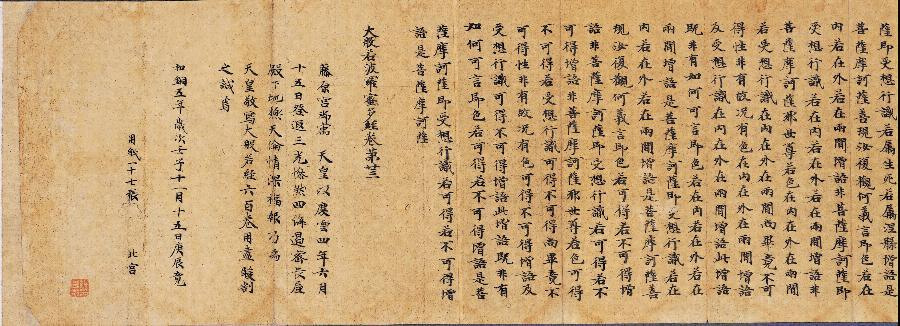 薩即受想行識若屬生死若屬涅槃增語是
菩薩摩訶薩善現汝復觀何義言即色若在
內若在外若在兩間增語非菩薩摩訶薩即
受想行識若在內若在外若在兩間增語非
菩薩摩訶薩耶世尊若色在內在外在兩間
若受想行識在內在外在兩間尚畢竟不可
得性非有故況有色在內在外在兩間增語
及受想行識在內在外在兩間增語此增語
既非有如何可言即色若在內若在外若在
兩間增語是菩薩摩訶薩即受想行識若在
內若在外若在兩間增語是菩薩摩訶薩善
現汝復觀何義言即色若可得若不可得增
語非菩薩摩訶薩即受想行識若可得若不
可得增語非菩薩摩訶薩耶世尊若色可得
不可得若受想行識可得不可得尚畢竟不
可得性非有故況有色可得不可得增語及
受想行識可得不可得增語此增語既非有
如何可言即色若可得若不可得增語是菩
薩摩訶薩即受想行識若可得若不可得增
語是菩薩摩訶薩
大般若波羅蜜多經卷第廿三
藤原宮御寓 天皇以慶雲四年六月
十五日登遐三光慘然四海遏密長屋
殿下地極天倫情深福報乃為
天皇敬寫大般若經六百卷用盡酸割
之誠焉
和銅五年歲次壬子十一月十五日庚辰竟
用紙一十七張
北宮